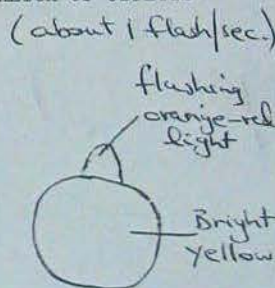 (about 1 flash/sec.)
flashing
orange-red
light
Bright
yellow